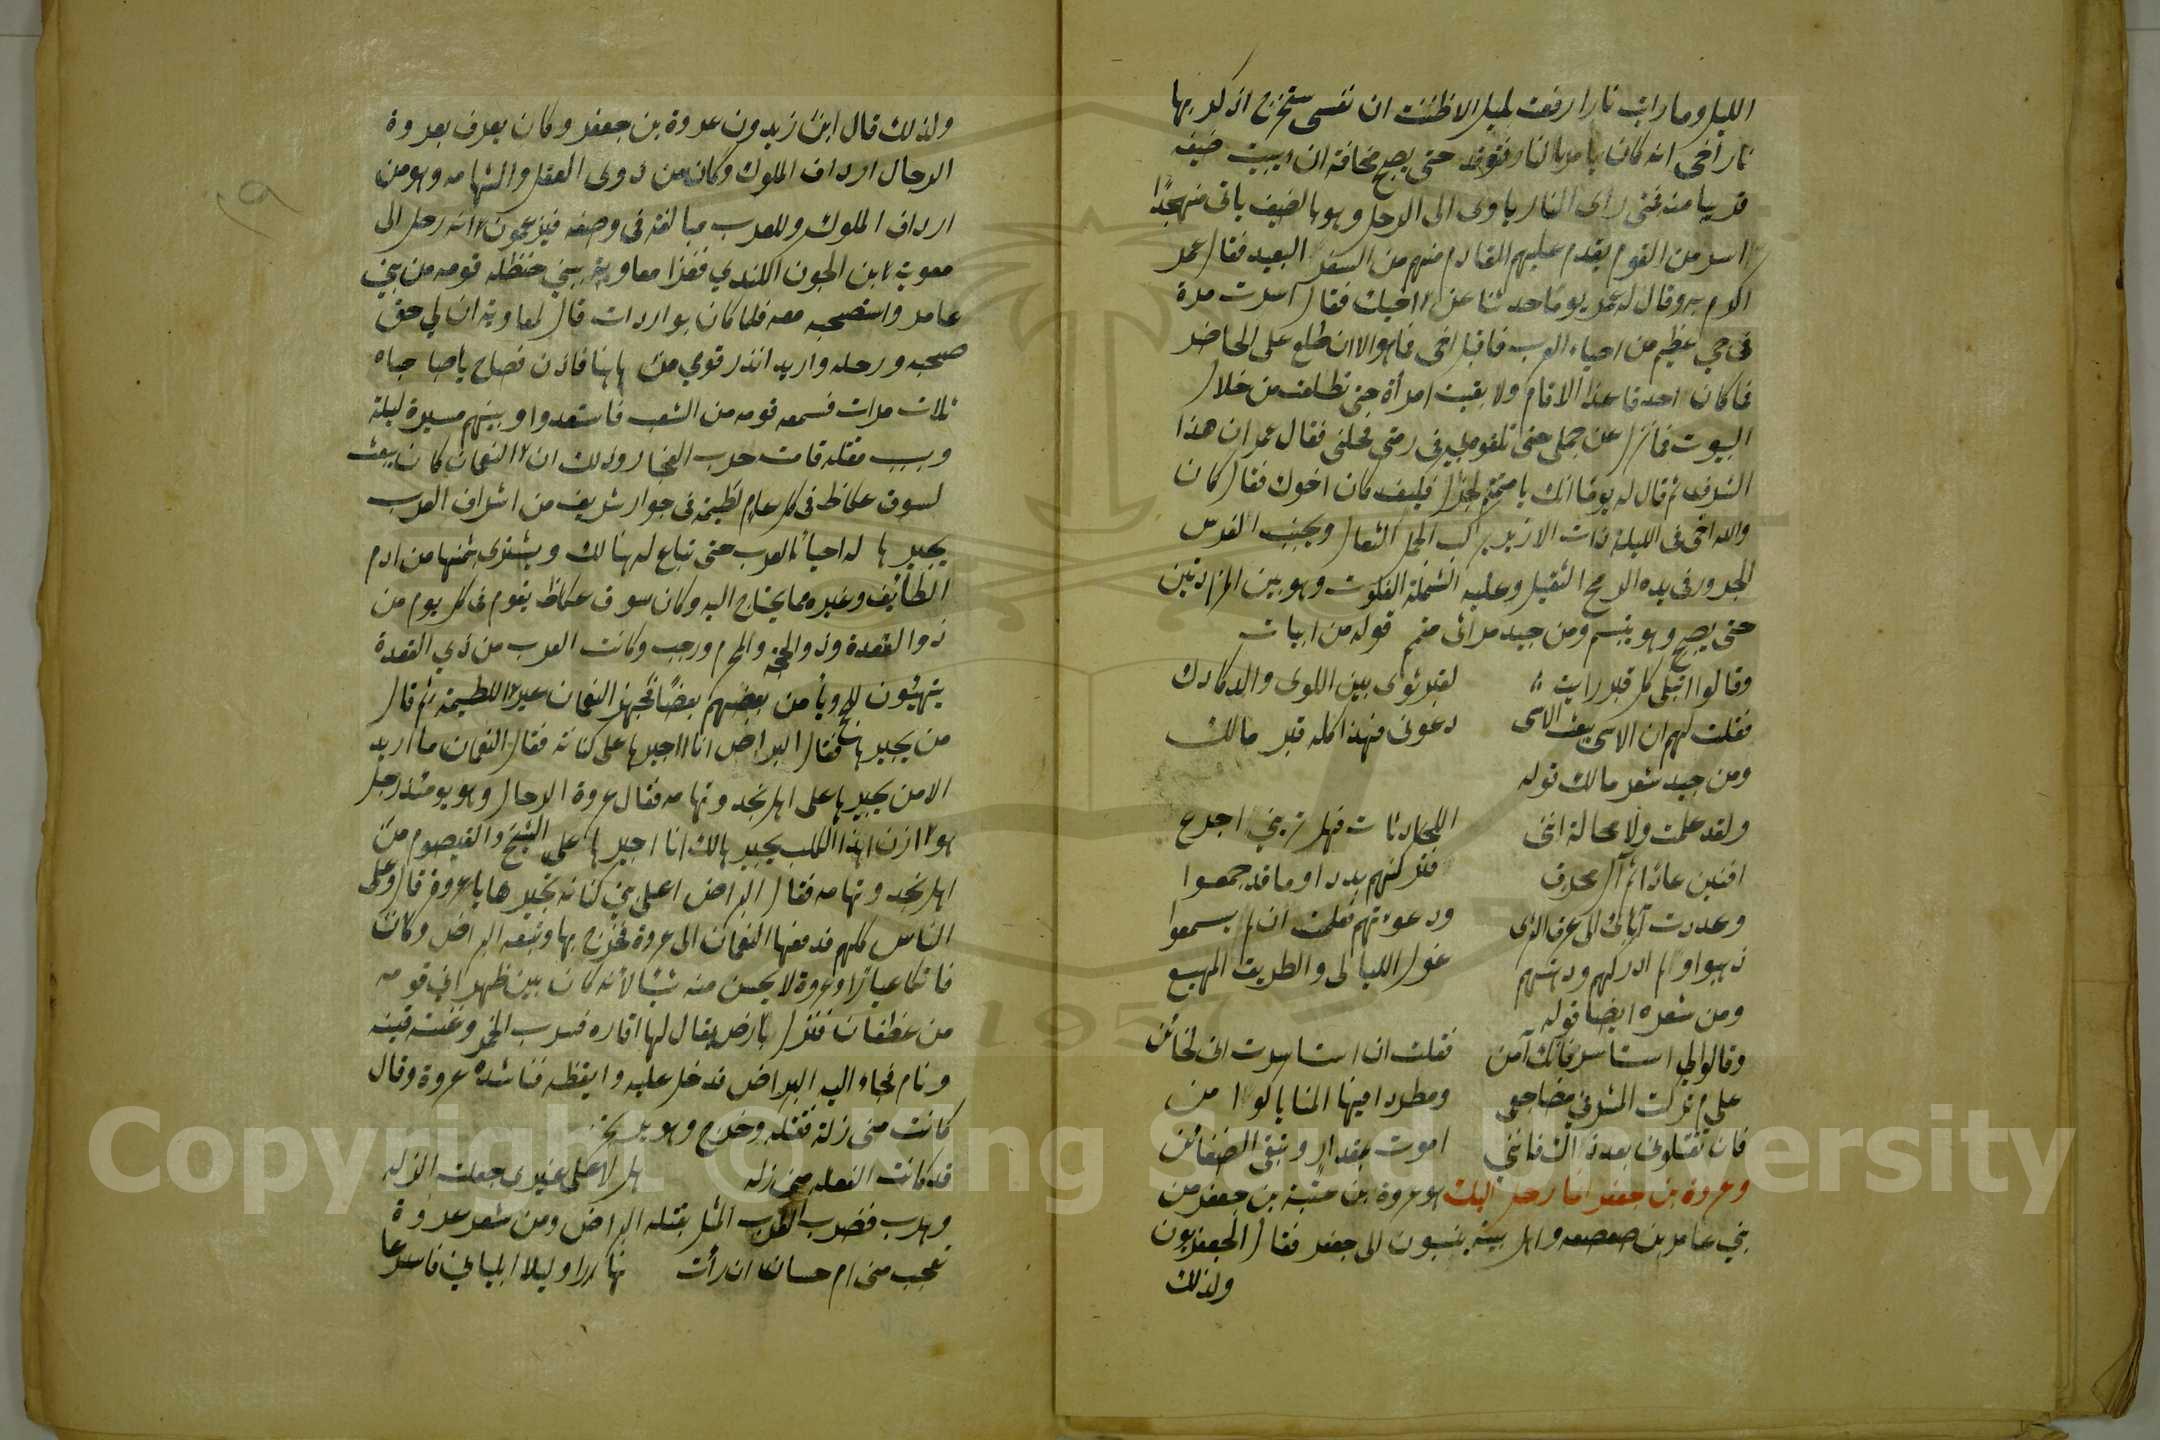 الليل وما رأيت نارا رفعت لميل الا ظننت ان نفسى ستخرج اذكر بها
نار أخى انه كان يامر بالنار فتوقد حتى يصبح مخافة ان يبيت ضيفه
قريبا منه فمتى رأى النار ياوى الى الرحل وهو بالضيف ياتى متهجدًا
اسر من القوم يقدم عليهم القادم منهم من السفر البعيد فقال عمر
اكرم به وقال له عمر يوما حدثنا عن اخيك فقال اسرت مرة
فى حي عظيم من احياء العرب فاقبل اخى فما هو الا ان طلع على الحاضر
فما كان احد قاعدا الا قام ولا بقيت امرأة حتى تطلعت من خلال
البيوت فما نزل عن جمله حتى تلقوه بي فى رمتي فحلنى فقال عمر ان هذا
الشرف ثم قال له يوما انك يا متمم لجزل فكيف كان اخوك فقال كان
والله اخى فى الليلة ذات الازيز يركب الجمل الثفال ويجنب الفرس
الجرور فى يده الرمح الثقيل وعليه الشملة الفلوت وهو بين المزادتين
حتى يصبح وهو يتبسم ومن جيد مراثى متمم قوله من ابيات
وقالوا اتبكى كل قبر رايت لقبر ثوى بين اللوى والدكادك
فقلت لهم ان الاسى يبعث الاسى دعونى فهذا كله قبر مالك
ومن جيد شعر مالك قوله
ولقد علمت ولا محالة اننى للحادثات فهل تريني اجزع
افنين عادًا ثم آل محرق فتركنهم بددا وما قد جمعوا
وعددت آبائى الى عرق الثرى ودعوتهم فعلمت ان لم يسمعوا
ذهبوا ولم ادركهم ودعتهم غول الليالى والطريق المهيع
ومن شعره ايضا قوله
وقالوا لي استاسر فانك آمن فقلت ان استاسرت انى لخائن
على م تركت المشرفي مضاجعى ومطردا فيها المنايا كوامن
فان تقتلونى بعد ذاك فانني اموت بمقدار وتبقى الضغائن
وعروة بن جعفر انما رحل اليك هو عروة بن عتبة بن جعفر من
بني عامر بن صعصعه واهل بيته ينسبون الى جعفر فقال الجعفريون
ولذلك
ولذلك قال ابن زيدون عروة بن جعفر وكان يعرف بعروة
الرحال ارداف الملوك وكان من ذوى العقل والشهامه وهو من
ارداف الملوك وللعرب مبالغة فى وصفه فيزعمون انه رحل الى
معوية ابن الجون الكندي فغزا معاوية ببني حنظله قومه من بني
عامر واستصحبه معه فلما كان بواردات قال لمعاوية ان لي حق
صحبه ورحله واريد انذر قومي من هاهنا فاذن فصاح ياصباحاه
ثلاث مرات فسمعه قومه من الشعب فاستعدوا وبينهم مسيرة ليلة
وبسبب مقتله قامت حرب الفجار وذلك ان النعمان كان يبعث
لسوق عكاظ فى كل عام لطيمة فى جوار شريف من اشراف العرب
يجيرها له احياء العرب حتى تباع له هنالك ويشترى بثمنها من ادم
الطائف وغيره مما يحتاج اليه وكان سوق عكاظ يقوم فى كل يوم من
ذو القعدة وذو الحجة والمحرم ورجب وكانت العرب من ذي القعدة
يتهيئون للحج ويأمن بعضهم بعضًا فجهز النعمان عير اللطيمة ثم قال
من يجيرها فقال البراض انا اجيرها على كنانه فقال النعمان ما اريد
الا من يجيرها على اهل نجد وتهامه فقال عروة الرحال وهو يومئذ رجل
هوازن اهذا الكلب يجيرها لك انا اجيرها على الشيح والقيصوم من
اهل نجد وتهامه فقال البراض اعلى بني كنانه تجيرها يا عروة قال وعلى
الناس كلهم فدفعها النعمان الى عروة فخرج بها وتبعه البراض وكان
فاتكا عيارًا وعروة لا يحسن منه شيًا لانه كان بين ظهرانى قومه
من غطفان فنزل بارض يقال لها اقاره فشرب الخمر وغنته قينه
ونام فجاء اليه البراض فدخل عليه وايقظه فناشده عروة وقال
كانت منى زلة فقتله وخرج وهو يرتجز
قد كانت الفعله مني زله هلا على غيرى جعلت الزله
وهرب فضرب العرب المثل بقتله البراض ومن شعر عروة
تعجب منى ام حسان ان رأت نهارا وليلا ابليانى فاسرعا
١٩
Copyright © King Saud University
1957